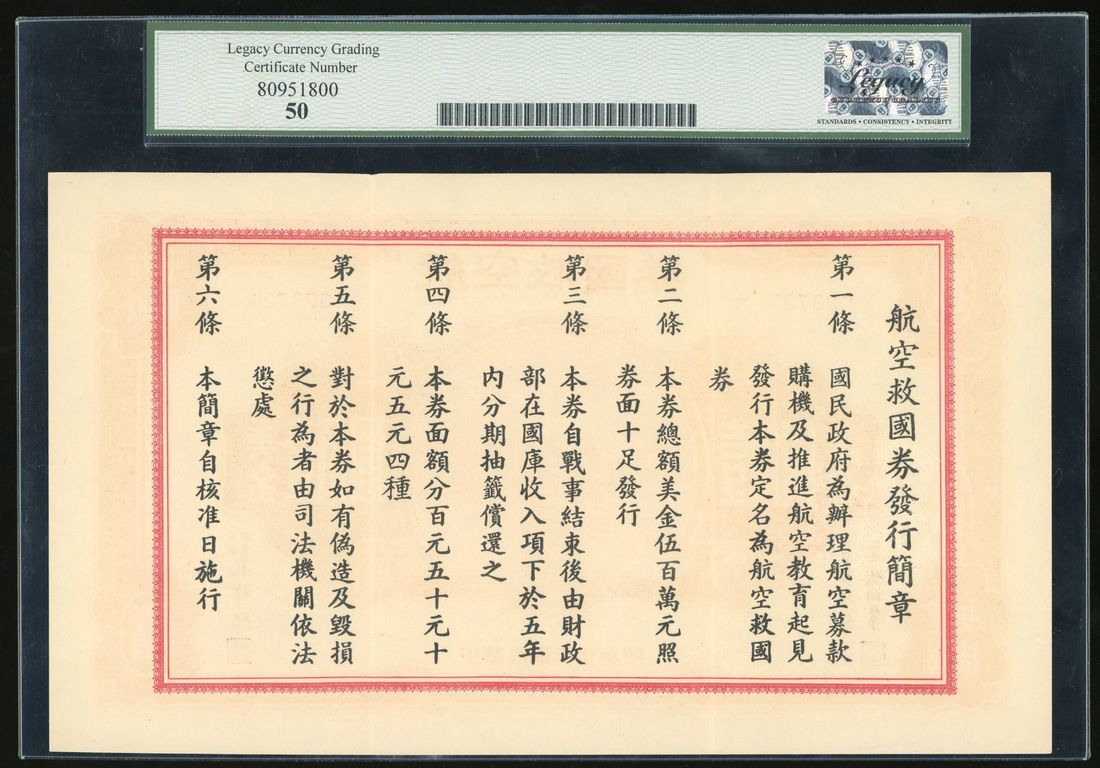 Legacy Currency Grading
Certificate Number
80951800
50
Legacy
STANDARDS • CONSISTENCY • INTEGRITY
航空救國券發行簡章
第一條 國民政府為辦理航空募款
購機及推進航空教育起見
發行本券定名為航空救國
券
第二條 本券總額美金伍百萬元照
券面十足發行
第三條 本券自戰事結束後由財政
部在國庫收入項下於五年
內分期抽籤償還之
第四條 本券面額分百元五十元十
元五元四種
第五條 對於本券如有偽造及毀損
之行為者由司法機關依法
懲處
第六條 本簡章自核准日施行